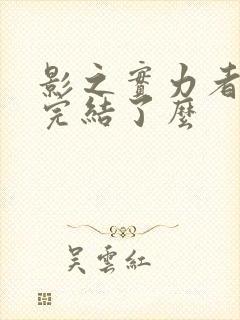 影之實力者
完結了麼
吴雲紅